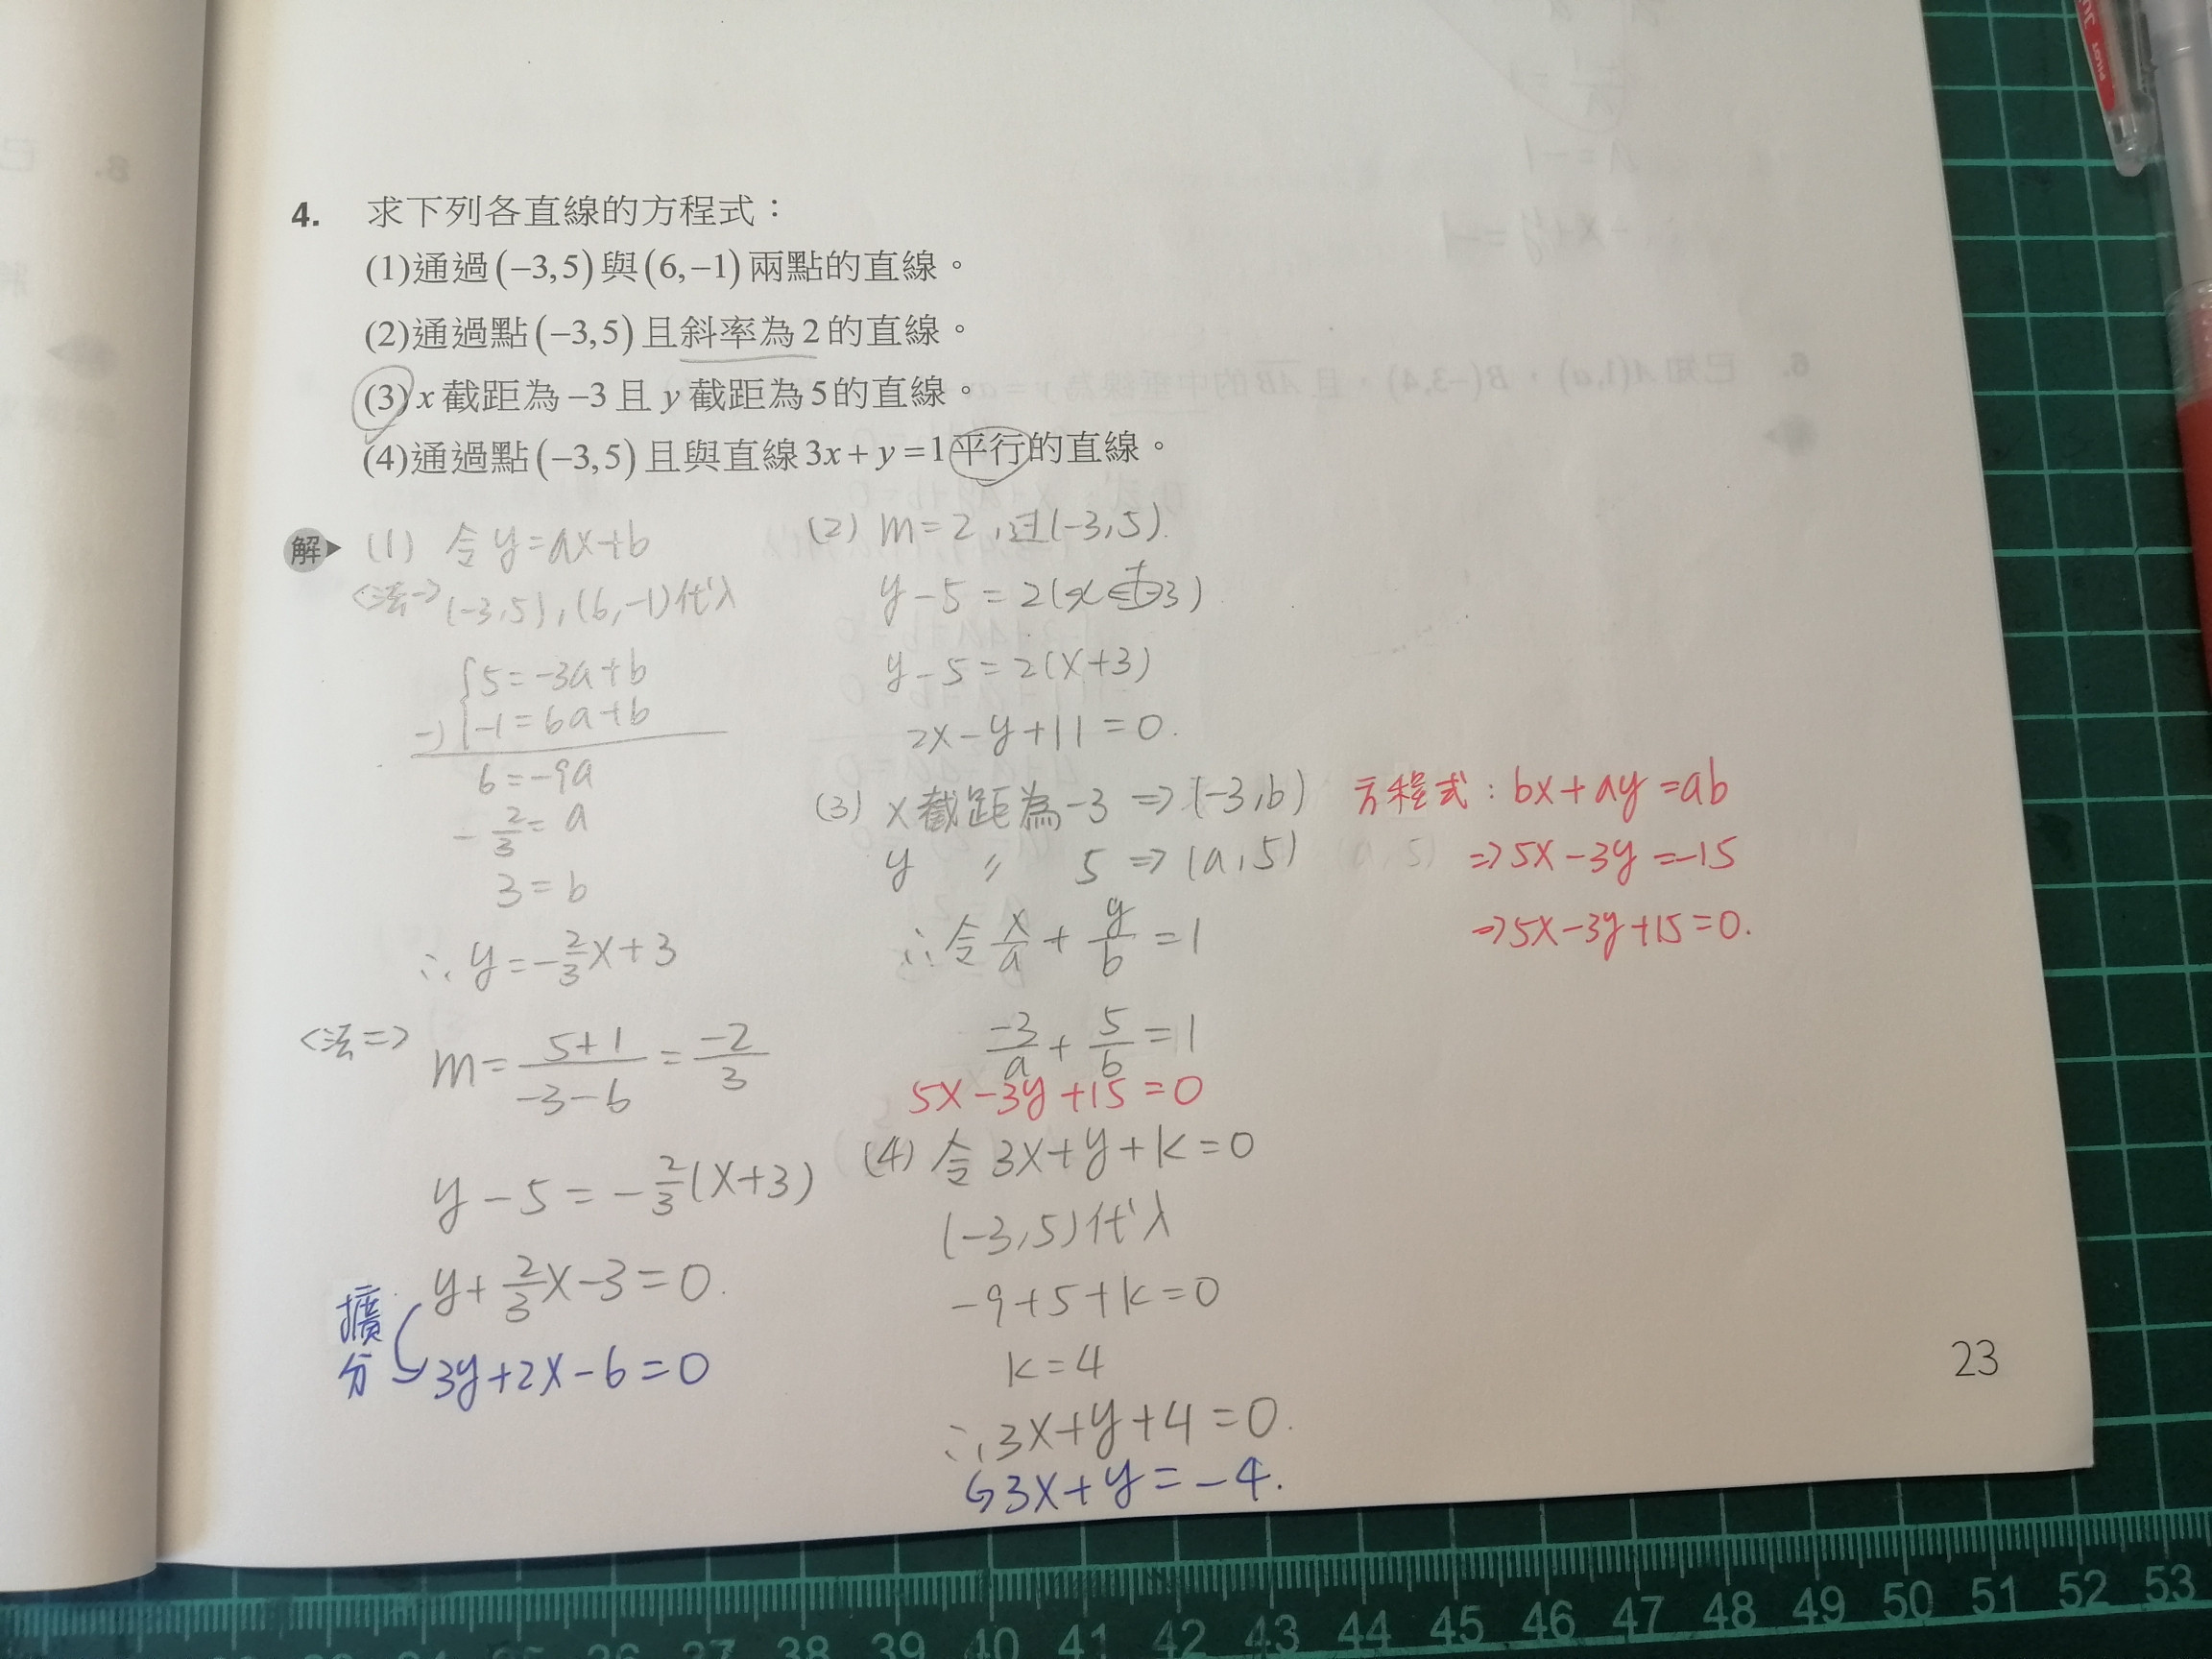 4. 求下列各直線的方程式：
(1)通過(−3,5)與(6,−1)兩點的直線。
(2)通過點(−3,5)且斜率為2的直線。
(3)x截距為−3且y截距為5的直線。
(4)通過點(−3,5)且與直線3x+y=1平行的直線。
解 (1) 令y=ax+b
<法一> (-3,5),(6,-1)代入
5=-3a+b
-) -1=6a+b
6=-9a
-2/3=a
3=b
∴y=-2/3x+3
<法二>
m=5+1/-3-6=-2/3
y-5=-2/3(x+3)
y+2/3x-3=0.
擴分 3y+2x-6=0
(2) m=2,过(-3,5).
y-5=2(x+3)
y-5=2(x+3)
2x-y+11=0.
(3) x截距為-3⇒(-3,b)
y 〃 5⇒(a,5)
∴令x/a+y/b=1
-3/a+5/b=1
5x-3y+15=0
方程式:bx+ay=ab
⇒5x-3y=-15
⇒5x-3y+15=0.
(4) 令3x+y+k=0
(-3,5)代入
-9+5+k=0
k=4
∴3x+y+4=0.
↳3x+y=-4.
23
36 37 38 39 40 41 42 43 44 45 46 47 48 49 50 51 52 53